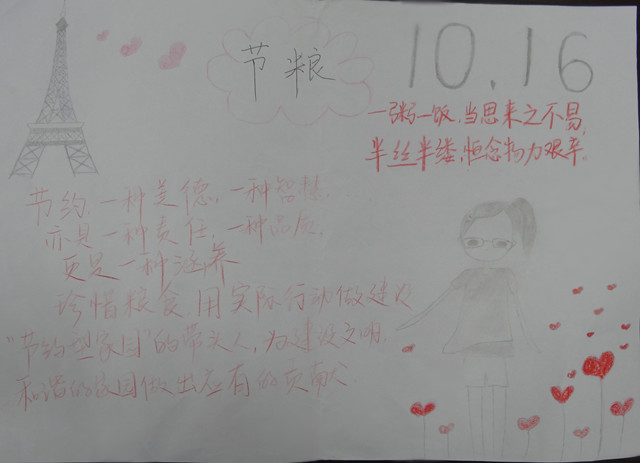 节粮
10.16
一粥一饭,当思来之不易,
半丝半缕,恒念物力艰辛.
节约,一种美德,一种智慧,
亦是一种责任,一种品质,
更是一种涵养
珍惜粮食 用实际行动做建设
"节约型家园"的带头人,为建设文明,
和谐的家园做出应有的贡献.